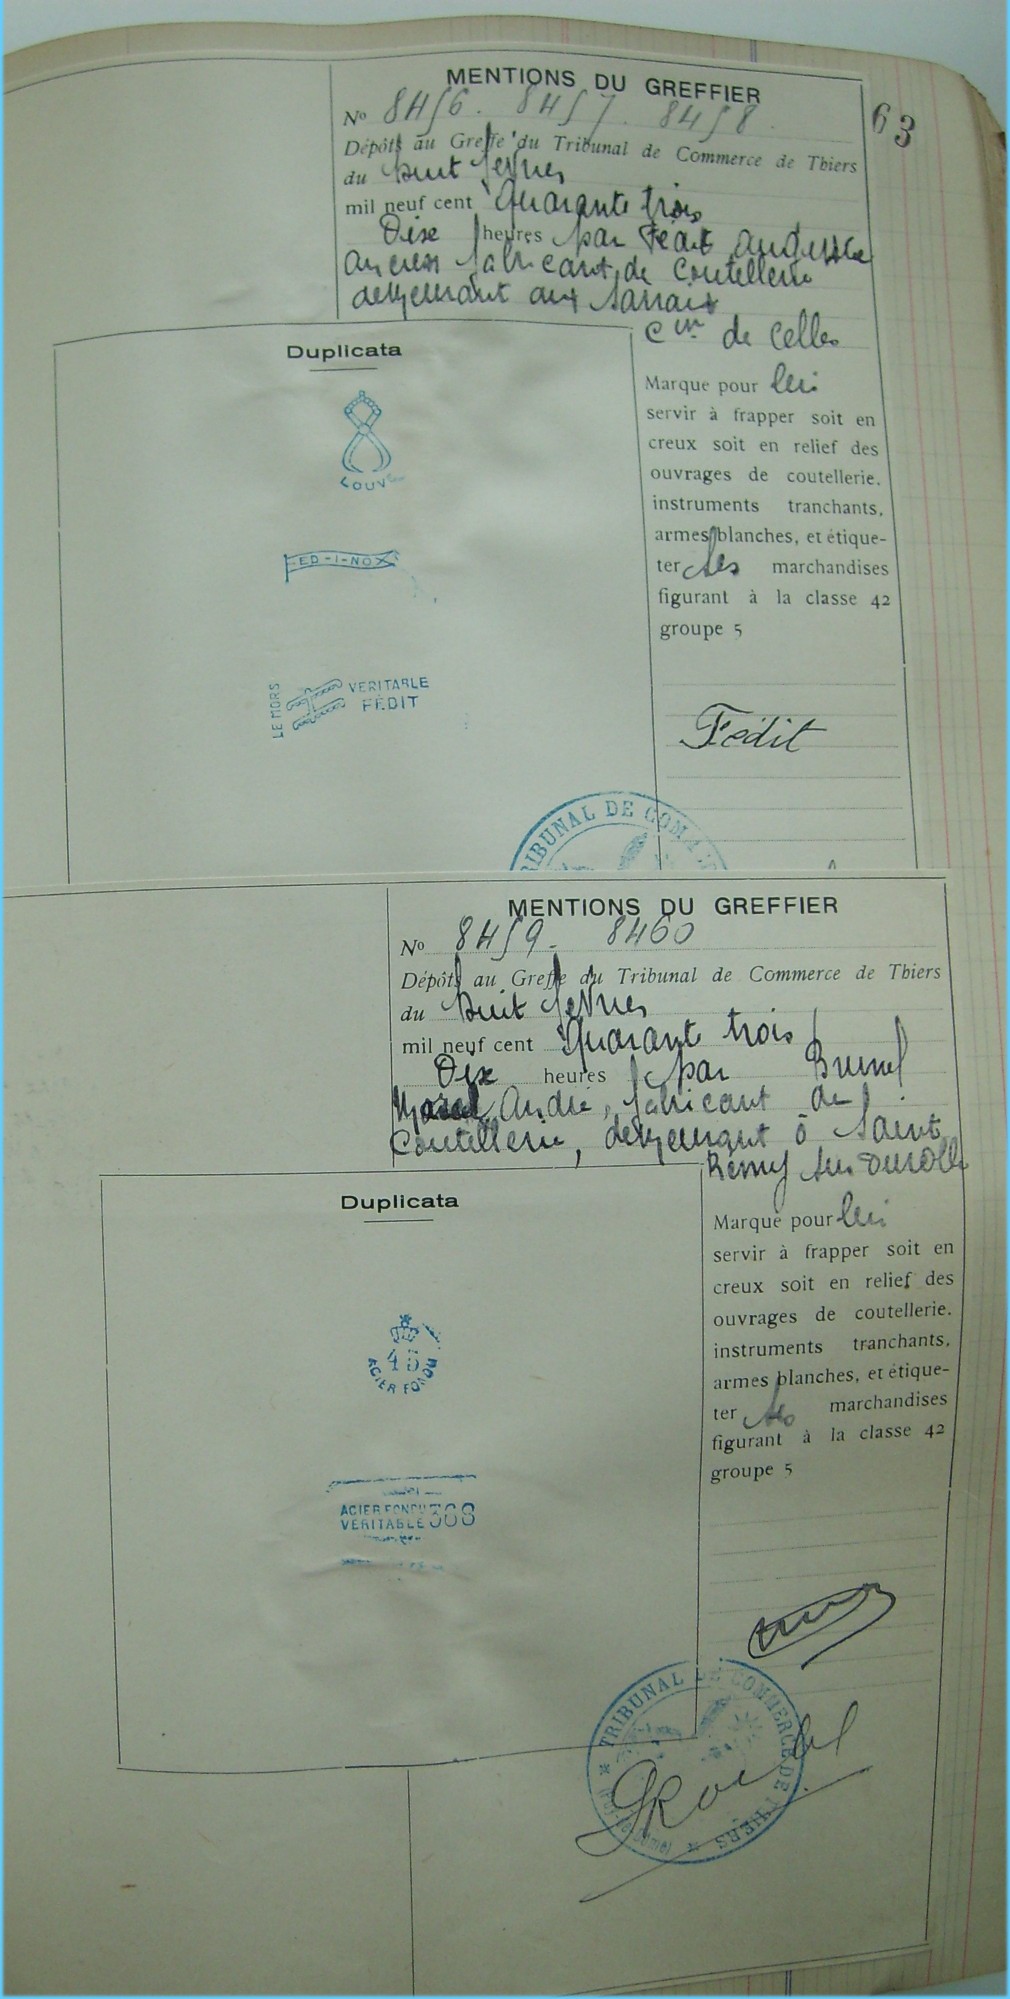 MENTIONS DU GREFFIER
63
No 8456. 8457. 8458.
Dépôts au Greffe du Tribunal de Commerce de Thiers
du huit février
mil neuf cent Quarante trois
Dix heures par Fédit
ancien fabricant de Coutellerie
demeurant aux Sarraix
Cne de Celles
Duplicata
LOUV
ED-I-NOX
LE MORS
VERITABLE
FÉDIT
Marque pour lui
servir à frapper soit en
creux soit en relief des
ouvrages de coutellerie.
instruments tranchants,
armes blanches, et étique-
ter ses marchandises
figurant à la classe 42
groupe 5
Fédit
TRIBUNAL DE COM
MENTIONS DU GREFFIER
No 8459. 8460
Dépôts au Greffe du Tribunal de Commerce de Thiers
du huit février
mil neuf cent Quarante trois
Dix heures par Brunel
André, fabricant de
Coutellerie, demeurant à Saint
Rémy sur Durolle
Duplicata
45
ACIER FONDU
ACIER FONDU
VERITABLE 308
Marque pour lui
servir à frapper soit en
creux soit en relief des
ouvrages de coutellerie.
instruments tranchants,
armes blanches, et étique-
ter ses marchandises
figurant à la classe 42
groupe 5
TRIBUNAL DE COMMERCE DE THIERS
(Puy-de-Dôme)